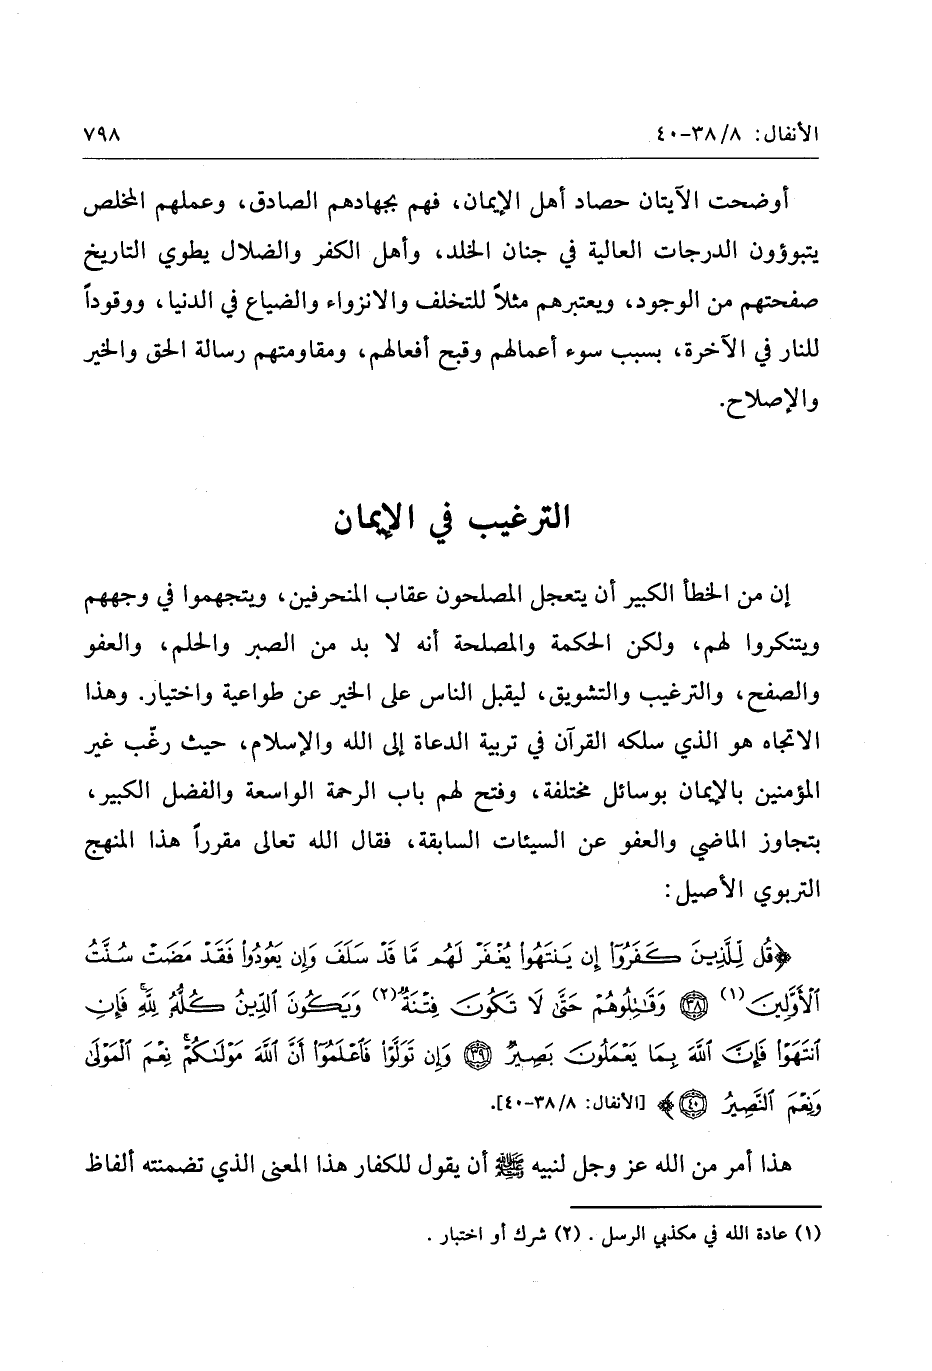 الأنفال: ٨/ ٣٨-٤٠ ٧٩٨
أوضحت الآيتان حصاد أهل الإيمان، فهم بجهادهم الصادق، وعملهم المخلص
يتبوؤون الدرجات العالية في جنان الخلد، وأهل الكفر والضلال يطوي التاريخ
صفحتهم من الوجود، ويعتبرهم مثلاً للتخلف والانزواء والضياع في الدنيا، ووقوداً
للنار في الآخرة، بسبب سوء أعمالهم وقبح أفعالهم، ومقاومتهم رسالة الحق والخير
والإصلاح.
الترغيب في الإيمان
إن من الخطأ الكبير أن يتعجل المصلحون عقاب المنحرفين، ويتجهموا في وجههم
ويتنكروا لهم، ولكن الحكمة والمصلحة أنه لا بد من الصبر والحلم، والعفو
والصفح، والترغيب والتشويق، ليقبل الناس على الخير عن طواعية واختيار. وهذا
الاتجاه هو الذي سلكه القرآن في تربية الدعاة إلى الله والإسلام، حيث رغّب غير
المؤمنين بالإيمان بوسائل مختلفة، وفتح لهم باب الرحمة الواسعة والفضل الكبير،
بتجاوز الماضي والعفو عن السيئات السابقة، فقال الله تعالى مقرراً هذا المنهج
التربوي الأصيل:
﴿قُل لِّلَّذِينَ كَفَرُوٓاْ إِن يَنتَهُواْ يُغۡفَرۡ لَهُم مَّا قَدۡ سَلَفَ وَإِن يَعُودُواْ فَقَدۡ مَضَتۡ سُنَّتُ
ٱلۡأَوَّلِينَ (١) ٣٨ وَقَٰتِلُوهُمۡ حَتَّىٰ لَا تَكُونَ فِتۡنَةٞ (٢) وَيَكُونَ ٱلدِّينُ كُلُّهُۥ لِلَّهِۚ فَإِنِ
ٱنتَهَوۡاْ فَإِنَّ ٱللَّهَ بِمَا يَعۡمَلُونَ بَصِيرٞ ٣٩ وَإِن تَوَلَّوۡاْ فَٱعۡلَمُوٓاْ أَنَّ ٱللَّهَ مَوۡلَىٰكُمۡۚ نِعۡمَ ٱلۡمَوۡلَىٰ
وَنِعۡمَ ٱلنَّصِيرُ ٤٠﴾ [الأنفال: ٨/ ٣٨-٤٠].
هذا أمر من الله عز وجل لنبيه ﷺ أن يقول للكفار هذا المعنى الذي تضمنته ألفاظ
(١) عادة الله في مكذبي الرسل . (٢) شرك أو اختبار .